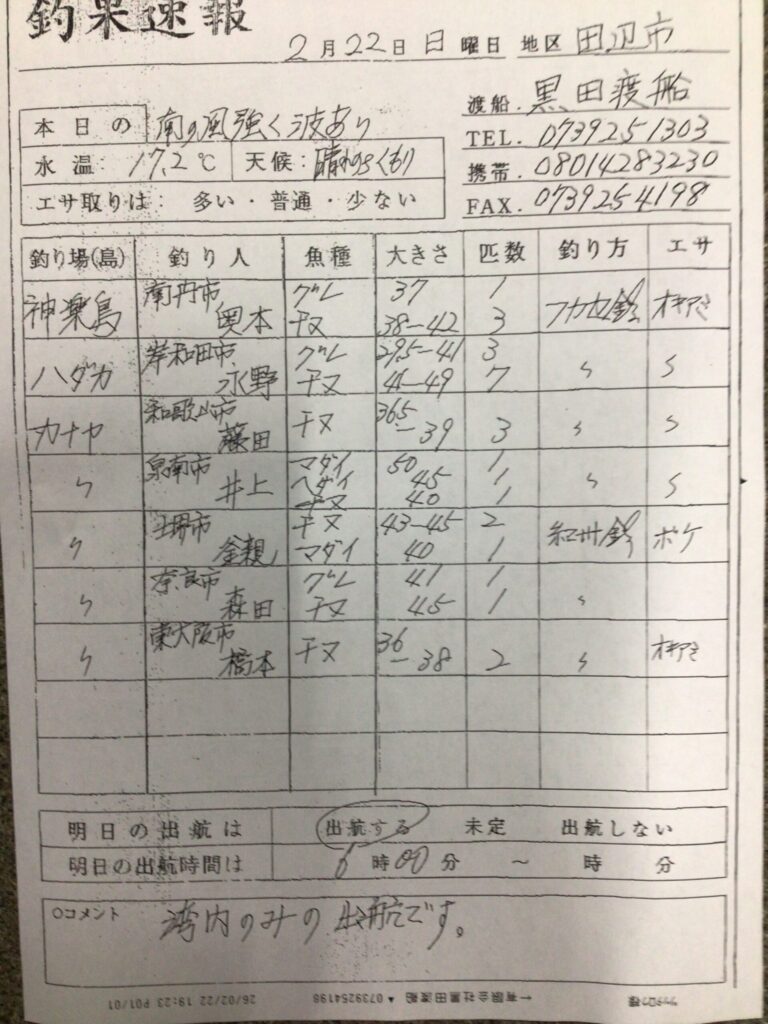 釣果速報
2月22日 日 曜日 地区 田辺市
渡船. 黒田渡船
本日の 南の風強く波あり
TEL. 0739251303
水温: 17.2℃ 天候: 晴れのちくもり
携帯. 08014283230
エサ取りは: 多い・普通・少ない
FAX. 0739254198
釣り場(島) 釣り人 魚種 大きさ 匹数 釣り方 エサ
神楽島 南丹市 奥本 グレ 37 1 フカセ釣 オキアミ
チヌ 38-42 3
ハダカ 岸和田市 永野 グレ 29.5-41 3 〃 〃
チヌ 41-49 7
カナヤ 和歌山市 藤田 チヌ 36.5-39 3 〃 〃
〃 泉南市 井上 マダイ 50 1 〃 〃
ヘダイ 45 1
チヌ 40 1
〃 堺市 釜親 チヌ 43-45 2 紀州釣 ボケ
マダイ 40 1
〃 奈良市 森田 グレ 41 1 〃
チヌ 45 1
〃 東大阪市 橋本 チヌ 36-38 2 〃 オキアミ
明日の出航は 出航する 未定 出航しない
明日の出航時間は 6時00分 ~ 時 分
○コメント 湾内のみの出航です。
26/02/22 19:23 P01/01 ←有限会社黒田渡船 ▲ 0739254198